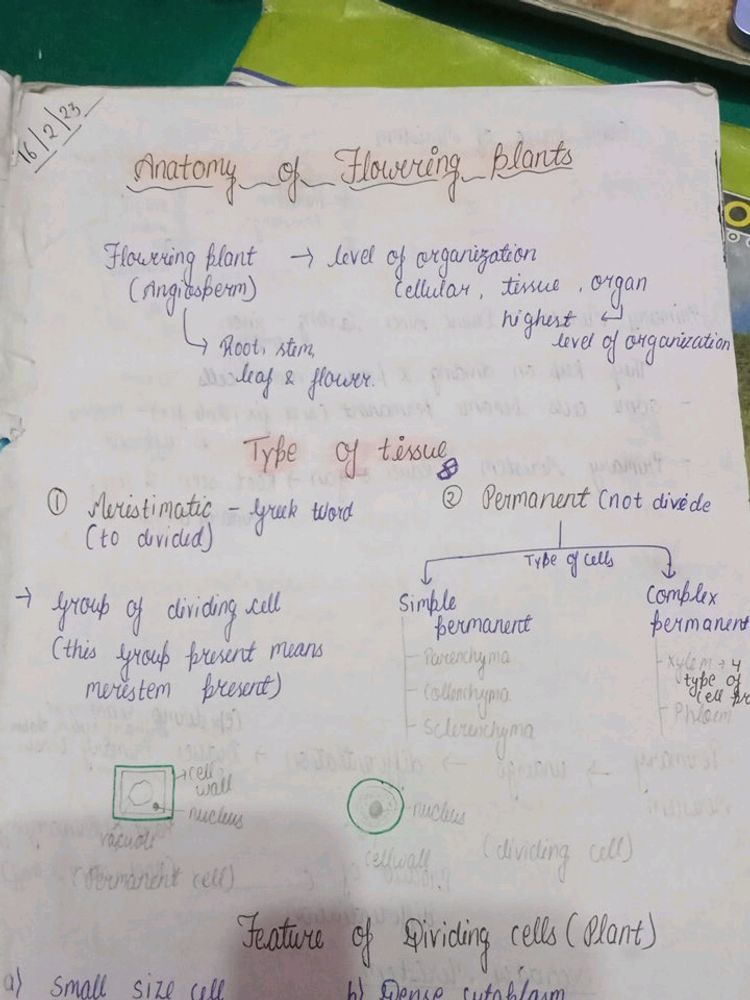 16/2/23
Anatomy of Flowering plants
Flowring plant → level of organization
(Angiosperm) cellular, tissue, organ
highest
level of organization
Root, stem,
leaf & flower.
Type of tissue
① Meristimatic - Greek word
(to divided)
② Permanent (not divide
Type of cells
→ Group of dividing cell
(this group present means
meristem present)
Simple
permanent
Parenchyma
Collenchyma
Sclerenchyma
Complex
permanent
Xylem → 4
type of
cell pr
Phloem
cell
wall
nucleus
vacuole
(Permanent cell)
nucleus
cellwall
(dividing cell)
Feature of Dividing cells (Plant)
a) small size cell b) Dense cytoplasm